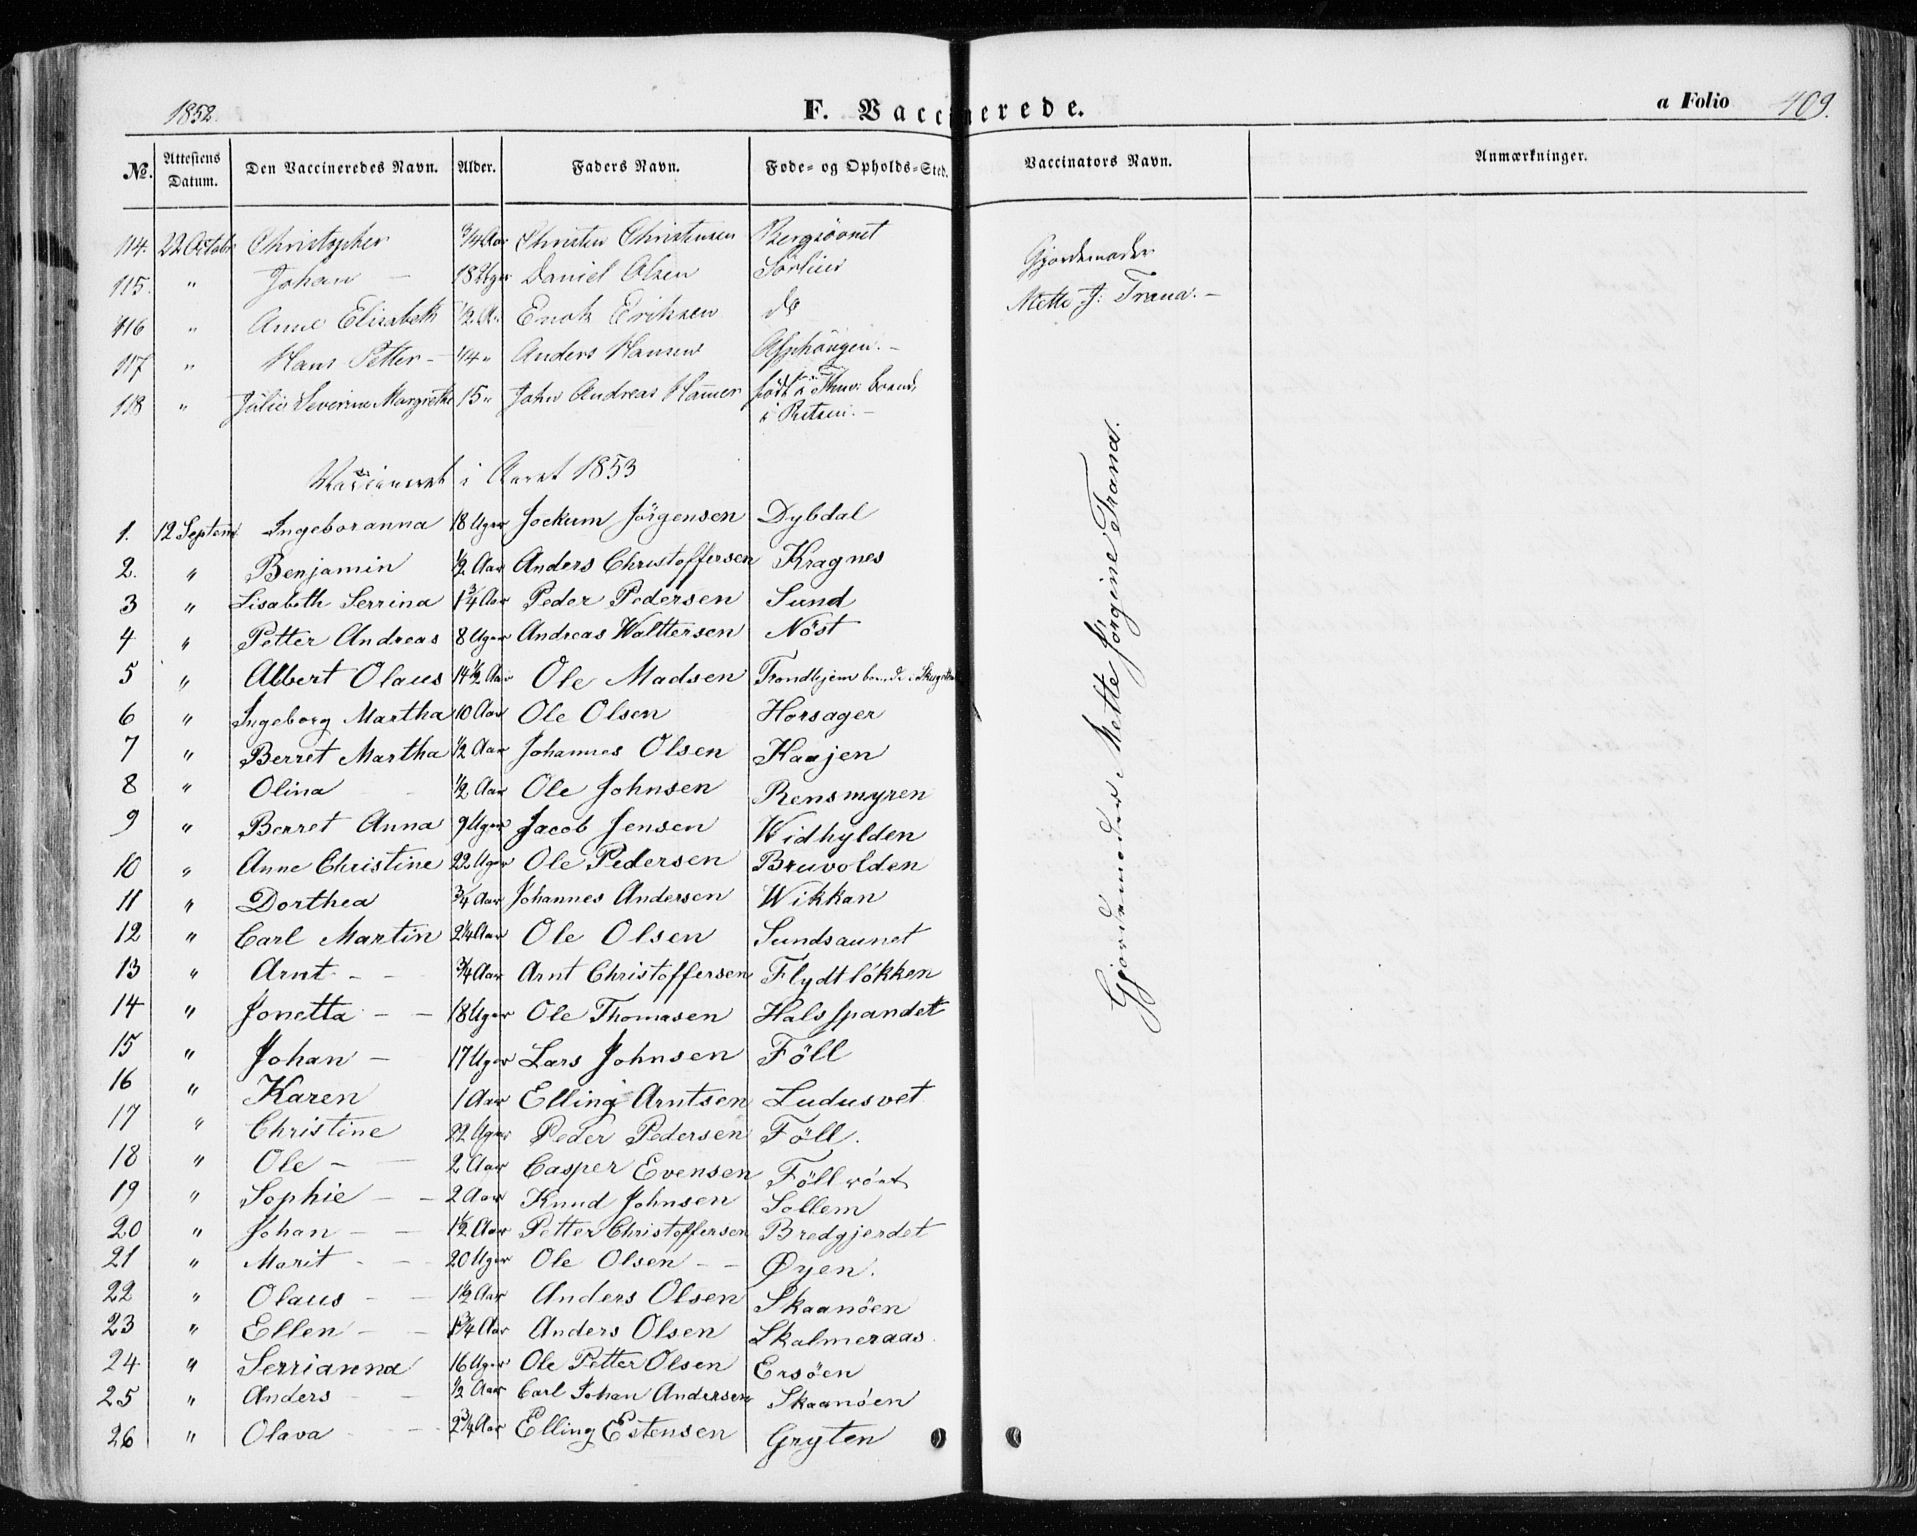 1852. F. Vaccinerede. a Folio 409.
No. Attestens Datum. Den Vaccineredes Navn. Alder. Faders Navn. Føde- og Opholds-Sted. Vaccinators Navn. Anmærkninger.
114. 22 Octobr Christopher 3/4 Aar Christen Christensen Bergsövnet Gjordemoder
115. " Johan – 18 Uger Daniel Olsen Sörlien Mette J: Trana. –
116 " Anne Elisabeth 1/2 A. Enok Eriksen do
117 " Hans Petter – 1/4 " Anders Hansen –
118 " Julie Severine Margrethe 15 " John Andreas Hamer født i
i –
Vaccineret i Aaret 1853
Gjordemoder Mette Jörgine Trana.
1. 12 Septem Ingeboranna 18 Uger Jockum Jörgensen Dybdal
2. " Benjamin 1/2 Aar Anders Christoffersen Kragnes
3 " Lisabeth Serrina 1 3/4 Aar Peder Pedersen Sund
4 " Petter Andreas 8 Uger Andreas Walttersen Nöst
5 " Albert Olaus 14 1/2 Aar Ole Madsen Trondhjem boende i
6 " Ingeborg Martha 10 Aar Ole Olsen Horsager
7 " Berret Martha 1/2 Aar Johannes Olsen Kaajen
8 " Olina 1/2 Aar Ole Johnsen Rensmyren
9 " Berret Anna 9 Uger Jacob Jensen Widhylden
10 " Anne Christine 22 Uger Ole Pedersen Bruvolden
11 " Dorthea 3/4 Aar Johannes Andersen Wikkan
12 " Carl Martin 2 1/4 Aar Ole Olsen Sundsaunet
13 " Arnt – – 3/4 Aar Arnt Christoffersen Flydtlökken
14 " Jonetta – – 18 Uger Ole Thomasen Halsspandet
15 " Johan – 17 Uger Lars Johnsen Föll
16 " Karen 1 Aar Elling Arntsen Ludusvet
17 " Christine 22 Uger Peder Pedersen Föll.
18 " Ole – – 2 Aar Casper Evensen Föllröst
19 " Sophie – – 2 Aar Knud Johnsen Sollem
20 " Johan – – 1 1/2 Aar Petter Christoffersen Bredgjerdet
21 " Marit – – 20 Uger Ole Olsen – – Øyen.
22 " Olaus – 1 1/2 Aar Anders Olsen Skaanöen
23 " Ellen – – 1 3/4 Aar Anders Olsen Skalmeraas
24 " Serrianna 16 Uger Ole Petter Olsen Ersöen
25 " Anders – – 1/2 Aar Carl Johan Andersen Skaanöen
26 " Olava – – 2 3/4 Aar Elling Estensen Gryten